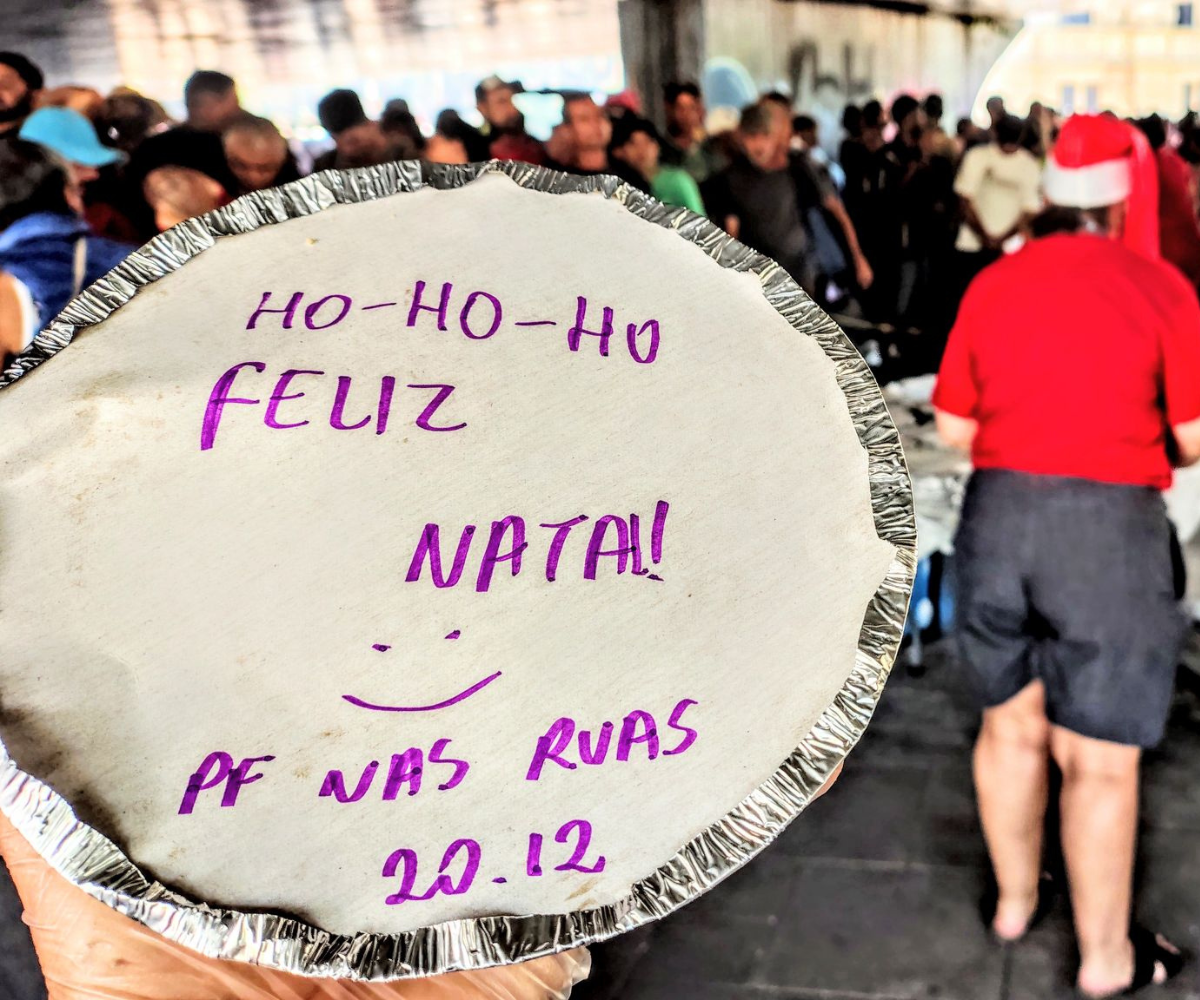 HO-HO-HO
FELIZ
NATAL!
PF NAS RUAS
20.12